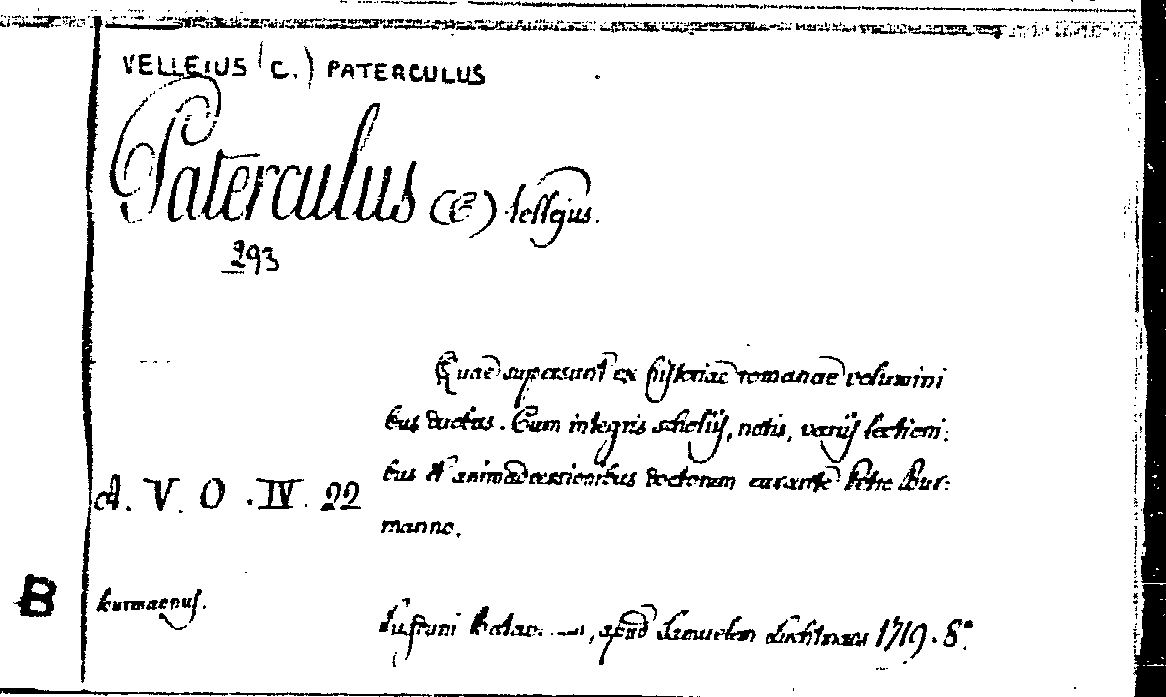 VELLEIUS (C.) PATERCULUS
Paterculus (C) Vellejus.
293
Quae supersunt ex historiae romanae volumini
bus duobus. Cum integris scholijs, notis, varijs lectioni:
bus et animadversionibus doctorum curante Petro Bur:
manno.
A. V. O. IV. 22
B
burmanus.
Lugduni Batav. —, apud Samuelem Luchtmans 1719. 8°.